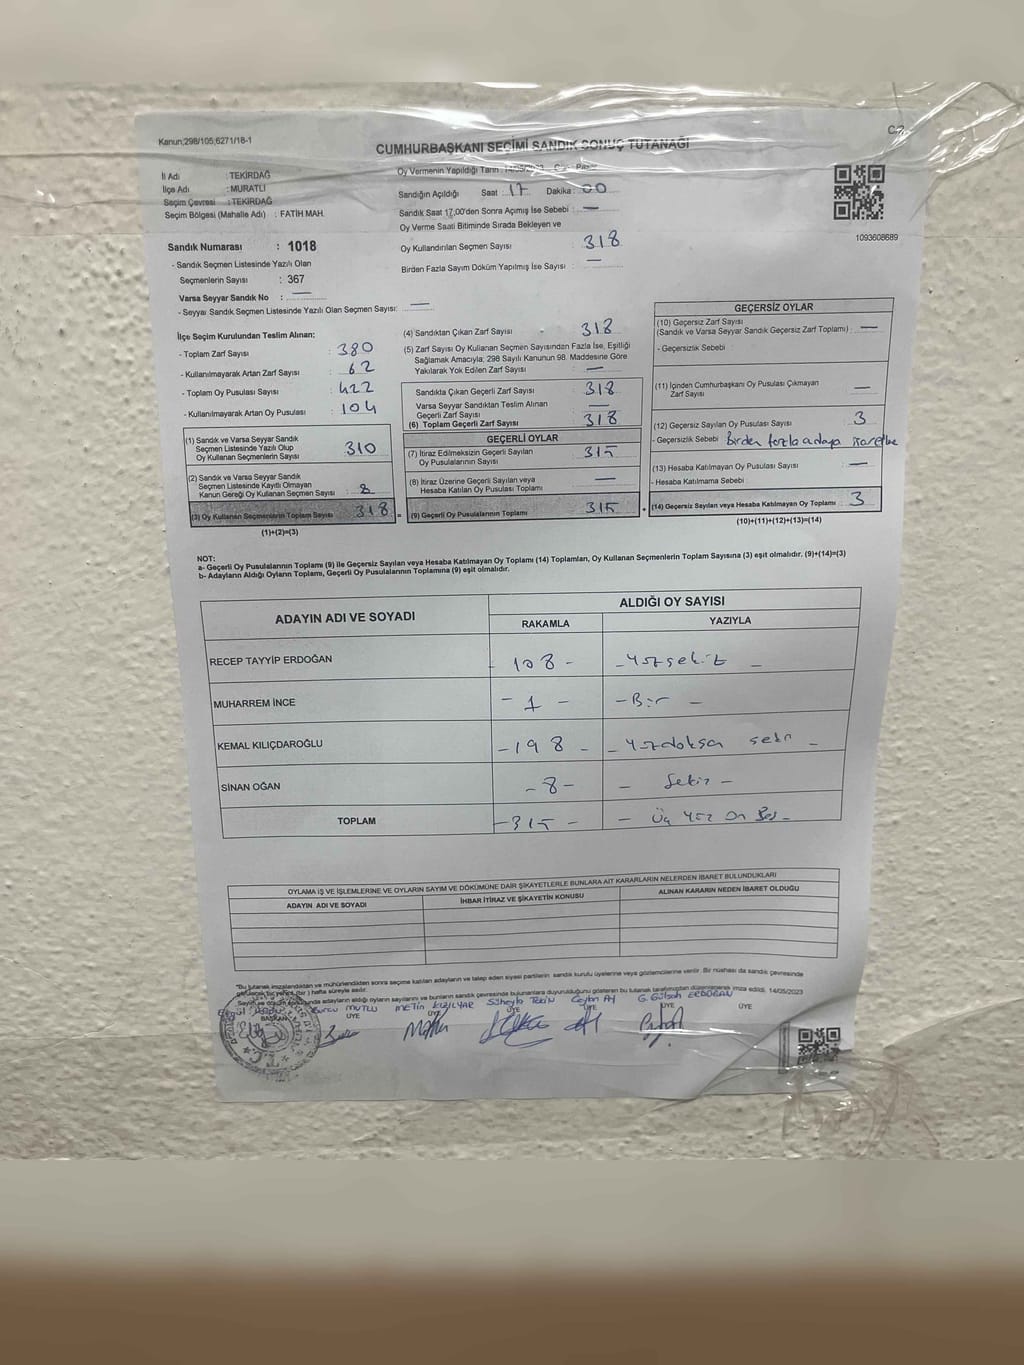 Kanun;298/105;6271/18-1
C-2
CUMHURBAŞKANI SEÇİMİ SANDIK SONUÇ TUTANAĞI
İl Adı : TEKİRDAĞ
İlçe Adı : MURATLI
Seçim Çevresi : TEKİRDAĞ
Seçim Bölgesi (Mahalle Adı) : FATİH MAH.
Oy Vermenin Yapıldığı Tarih
Sandığın Açıldığı Saat : 17 Dakika : 00
Sandık Saat 17.00'den Sonra Açımış İse Sebebi : —
Oy Verme Saati Bitiminde Sırada Bekleyen ve
Oy Kullandırılan Seçmen Sayısı : 318
Birden Fazla Sayım Döküm Yapılmış İse Sayısı : —
1093608689
Sandık Numarası : 1018
- Sandık Seçmen Listesinde Yazılı Olan
Seçmenlerin Sayısı : 367
Varsa Seyyar Sandık No : —
- Seyyar Sandık Seçmen Listesinde Yazılı Olan Seçmen Sayısı: —
İlçe Seçim Kurulundan Teslim Alınan:
- Toplam Zarf Sayısı : 380
- Kullanılmayarak Artan Zarf Sayısı : 62
- Toplam Oy Pusulası Sayısı : 422
- Kullanılmayarak Artan Oy Pusulası : 104
(1) Sandık ve Varsa Seyyar Sandık
Seçmen Listesinde Yazılı Olup
Oy Kullanan Seçmenlerin Sayısı : 310
(2) Sandık ve Varsa Seyyar Sandık
Seçmen Listesinde Kayıtlı Olmayan
Kanun Gereği Oy Kullanan Seçmen Sayısı : 8
(3) Oy Kullanan Seçmenlerin Toplam Sayısı : 318
(1)+(2)=(3)
(4) Sandıktan Çıkan Zarf Sayısı : 318
(5) Zarf Sayısı Oy Kullanan Seçmen Sayısından Fazla İse, Eşitliği
Sağlamak Amacıyla; 298 Sayılı Kanunun 98. Maddesine Göre
Yakılarak Yok Edilen Zarf Sayısı : —
Sandıkta Çıkan Geçerli Zarf Sayısı : 318
Varsa Seyyar Sandıktan Teslim Alınan
Geçerli Zarf Sayısı : —
(6) Toplam Geçerli Zarf Sayısı : 318
GEÇERLİ OYLAR
(7) İtiraz Edilmeksizin Geçerli Sayılan
Oy Pusulalarının Sayısı : 315
(8) İtiraz Üzerine Geçerli Sayılan veya
Hesaba Katılan Oy Pusulası Toplamı : —
= (9) Geçerli Oy Pusulalarının Toplamı : 315
GEÇERSİZ OYLAR
(10) Geçersiz Zarf Sayısı
(Sandık ve Varsa Seyyar Sandık Geçersiz Zarf Toplamı) : —
- Geçersizlik Sebebi :
(11) İçinden Cumhurbaşkanı Oy Pusulası Çıkmayan
Zarf Sayısı : —
(12) Geçersiz Sayılan Oy Pusulası Sayısı : 3
- Geçersizlik Sebebi : Birden fazla adaya
(13) Hesaba Katılmayan Oy Pusulası Sayısı : —
- Hesaba Katılmama Sebebi :
+ (14) Geçersiz Sayılan veya Hesaba Katılmayan Oy Toplamı : 3
(10)+(11)+(12)+(13)=(14)
NOT:
a- Geçerli Oy Pusulalarının Toplamı (9) ile Geçersiz Sayılan veya Hesaba Katılmayan Oy Toplamı (14) Toplamları, Oy Kullanan Seçmenlerin Toplam Sayısına (3) eşit olmalıdır. (9)+(14)=(3)
b- Adayların Aldığı Oyların Toplamı, Geçerli Oy Pusulalarının Toplamına (9) eşit olmalıdır.
ADAYIN ADI VE SOYADI
ALDIĞI OY SAYISI
RAKAMLA YAZIYLA
RECEP TAYYİP ERDOĞAN - 108 - - Yüzsekiz -
MUHARREM İNCE - 1 - - Bir -
KEMAL KILIÇDAROĞLU - 198 - - Yüzdoksa seki -
SİNAN OĞAN - 8 - - Sekiz -
TOPLAM - 315 - - Üç Yüz On Beş -
OYLAMA İŞ VE İŞLEMLERİNE VE OYLARIN SAYIM VE DÖKÜMÜNE DAİR ŞİKAYETLERLE BUNLARA AİT KARARLARIN NELERDEN İBARET BULUNDUKLARI
ADAYIN ADI VE SOYADI İHBAR İTİRAZ VE ŞİKAYETİN KONUSU ALINAN KARARIN NEDEN İBARET OLDUĞU
"Bu tutanak imzalandıktan ve mühürlendikten sonra seçime katılan adayların ve talep eden siyasi partilerin sandık kurulu üyelerine veya gözlemcilerine verilir. Bir nüshası da sandık çevresinde
(bir) hafta süreyle asılır.
adayların aldığı oyların sayılarını ve bunların sandık çevresinde bulunanlara duyurulduğunu gösteren bu tutanak tarafımızdan düzenlenerek imza edildi. 14/05/2023
Burcu MUTLU METİN KIZILYAR Süheyla Tekin Ceylan AY G. Gülşah ERDOĞAN
BAŞKAN ÜYE ÜYE ÜYE ÜYE ÜYE ÜYE